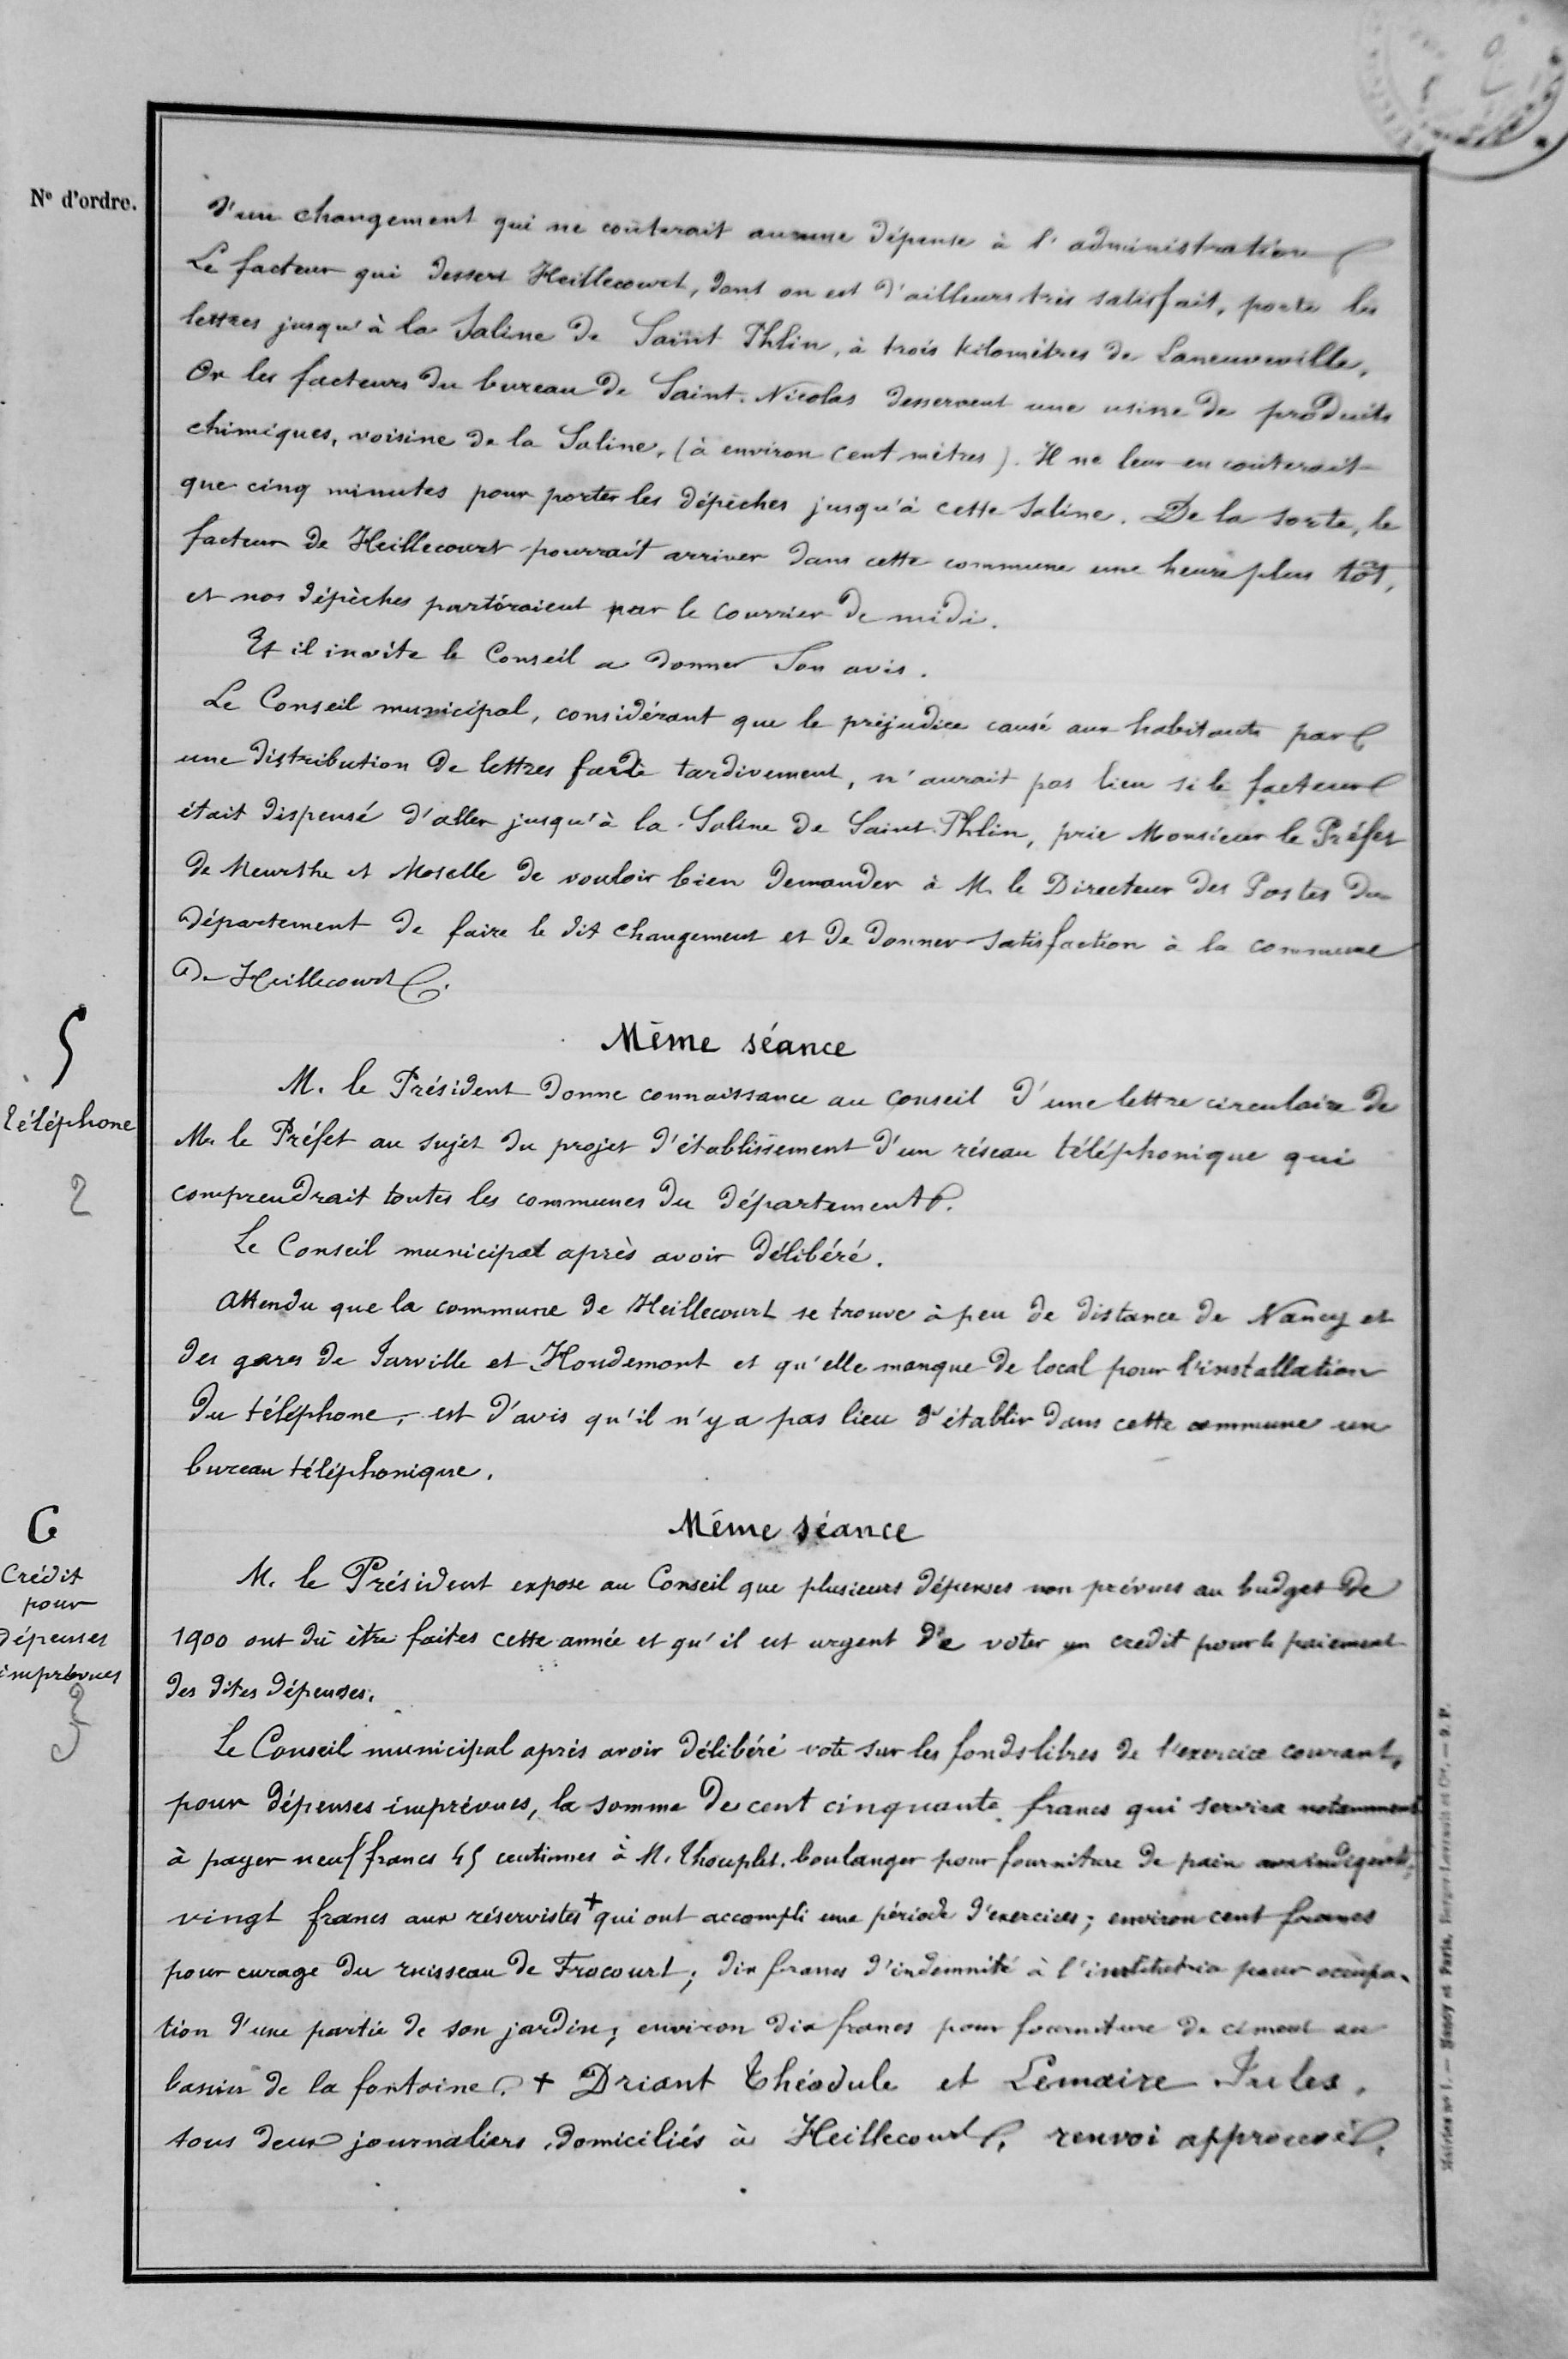 N° d'ordre.
d'un changement qui ne coûterait aucune dépense à l'administration
Le facteur qui dessert Heillecourt, dont on est d'ailleurs très satisfait, porte les
lettres jusqu'à la Saline de Saint Phlin, à trois kilomètres de Laneuveville,
Or les facteurs du bureau de Saint-Nicolas desservent une usine de produits
chimiques, voisine de la Saline, (à environ cent mètres). Il ne leur en coûterait
que cinq minutes pour porter les dépêches jusqu'à cette Saline. De la sorte, le
facteur de Heillecourt pourrait arriver dans cette commune une heure plus tôt,
et nos dépêches partiraient par le courrier de midi.
Et il invite le Conseil a donner Son avis.
Le Conseil municipal, considérant que le préjudice causé aux habitants par
une distribution de lettres tardivement, n'aurait pas lieu si le facteur
était dispensé d'aller jusqu'à la Saline de Saint-Phlin, prie Monsieur le Préfet
de Meurthe et Moselle de vouloir bien demander à M. le Directeur des Postes du
département de faire le dit changement et de donner satisfaction à la commune
de Heillecourt.
5
Téléphone
2
Même séance
M. le Président donne connaissance au Conseil d'une lettre circulaire de
M. le Préfet au sujet du projet d'établissement d'un réseau téléphonique qui
comprendrait toutes les communes du département.
Le Conseil municipal après avoir délibéré.
Attendu que la commune de Heillecourt se trouve à peu de distance de Nancy et
des gares de Jarville et Houdemont et qu'elle manque de local pour l'installation
du téléphone, est d'avis qu'il n'y a pas lieu d'établir dans cette commune un
bureau téléphonique.
6
Crédit
pour
dépenses
imprévues
3
Même séance
M. le Président expose au Conseil que plusieurs dépenses non prévues au budget de
1900 ont dû être faites cette année et qu'il est urgent de voter un crédit pour le paiement
des dites dépenses.
Le Conseil municipal après avoir délibéré vote sur les fonds libres de l'exercice courant,
pour dépenses imprévues, la somme de cent cinquante francs qui servira notamment
à payer neuf francs 45 centimes à M. Thouplet, boulanger pour fourniture de pain aux indigents;
vingt francs aux réservistes + qui ont accompli une période d'exercices; environ cent francs
pour curage du ruisseau de Frocourt; dix francs d'indemnité à l'institutrice pour occupa-
tion d'une partie de son jardin; environ dix francs pour fourniture de ciment au
bassin de la fontaine. + Driant Théodule et Lemaire Jules,
tous deux journaliers, domiciliés à Heillecourt, renvoi approuvé.
Mairies n° 1. — Nancy et Paris, Berger-Levrault et Cie. — 2. P.